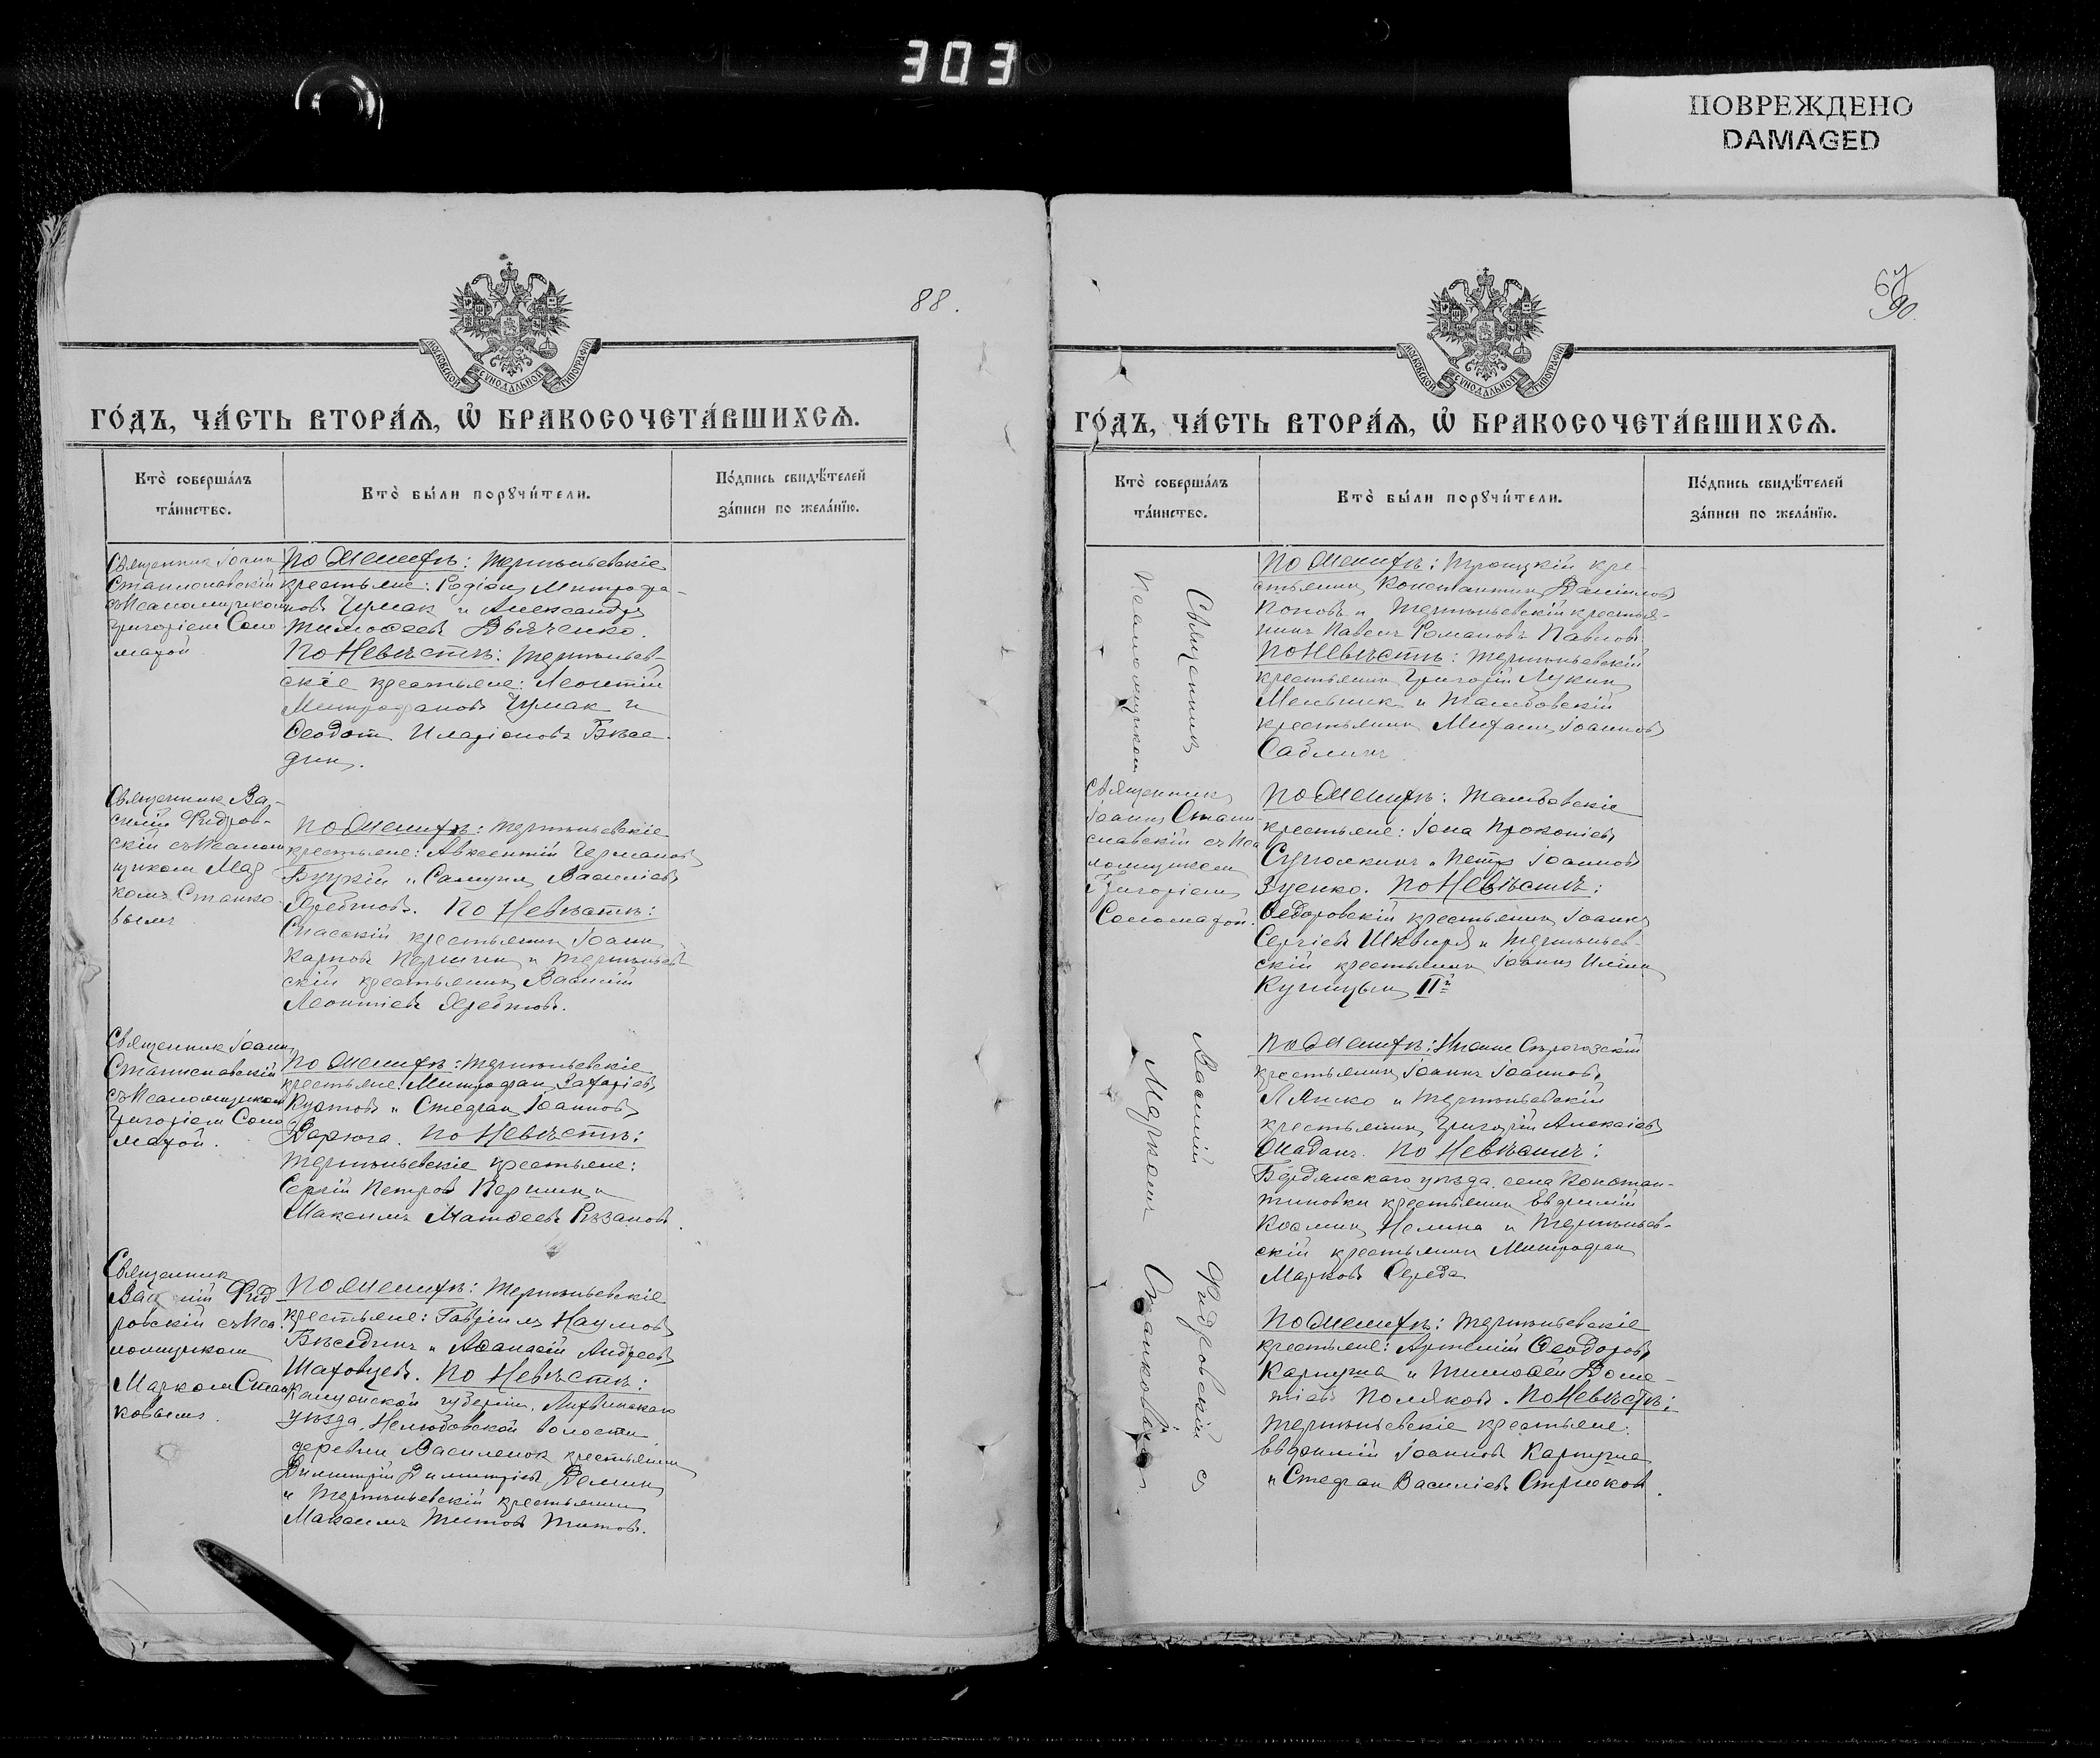 303
ПОВРЕЖДЕНО
DAMAGED
88.
МОСКОВСКОЙ СѴНОДАЛЬНОЙ ТИПОГРАФІИ
ГО́ДЪ, ЧА́СТЬ ВТОРА́Ѧ, Ѡ҆ БРАКОСОЧЕТА́ВШИХСѦ.
Кто̀ соверша́лъ
та́инство.
Кто̀ бы́ли порꙋчи́тели.
По́дпись свидѣ́телей
за́писи по жела́нїю.
Священникъ Іоаннъ
Станиславскій
съ Псаломщикомъ
Григоріемъ Соло
махой.
По Женихѣ: Терпѣньевскіе
крестьяне: Родіонъ Митрофа-
новъ Чумак и Александръ
Тимоѳеевъ Дьяченко.
По Невѣстѣ: Терпѣньев-
скіе крестьяне: Леонтій
Митрофановъ Чумак и
Ѳеодотъ Иларіоновъ Бѣсе-
динъ.
Священник Ва-
силій Фидров-
скій съ Псалом
щикомъ Мар
комъ Станко-
вымъ.
По Женихѣ: Терпѣньевскіе
крестьяне: Авксентій Германовъ
Буцкій и Самуилъ Василіевъ
Жребтовъ. По Невѣстѣ:
Спасскій крестьянинъ Іоаннъ
Карповъ Першин и Терпѣньев
скій крестьянинъ Василій
Леонтіевъ Жребтовъ.
Священник Іоаннъ
Станиславскій
съ Псаломщикомъ
Григоріемъ Соло
махой.
По Женихѣ: Терпѣньевскіе
крестьяне: Митрофанъ Захаріевъ
Куртовъ и Стефанъ Іоанновъ
Варюга. По Невѣстѣ:
Терпѣньевскіе крестьяне:
Сергій Петровъ Першинъ и
Максимъ Матѳеевъ Рязановъ.
Священник
Василій Фид
ровскій съ Пса
ломщикомъ
Маркомъ Стан
ковымъ.
По Женихѣ: Терпѣньевскіе
крестьяне: Гавріилъ Наумовъ
Бѣсединъ и Аѳанасій Андреевъ
Шаховцевъ. По Невѣстѣ:
Калужской губерніи, Лихвинскаго
уѣзда, волости
деревни Василенок крестьянинъ
Димитрій Димитріевъ Деминъ
и Терпѣньевскій крестьянинъ
Максимъ Титовъ Титовъ.
67
90.
МОСКОВСКОЙ СѴНОДАЛЬНОЙ ТИПОГРАФІИ
ГО́ДЪ, ЧА́СТЬ ВТОРА́Ѧ, Ѡ҆ БРАКОСОЧЕТА́ВШИХСѦ.
Кто̀ соверша́лъ
та́инство.
Кто̀ бы́ли порꙋчи́тели.
По́дпись свидѣ́телей
за́писи по жела́нїю.
Священникъ Василій Фидровскій съ
Псаломщикомъ Маркомъ Станковымъ.
По Женихѣ: Троицкій кре-
стьянинъ Константинъ Даніиловъ
Поповъ и Терпѣньевскій крестья-
нинъ Павелъ Романовъ Павловъ.
По Невѣстѣ: Терпѣньевскій
крестьянинъ Григорій Лукинъ
Мельник и Тамбовскій
крестьянинъ Михаилъ Іоанновъ
Саблинъ.
Священникъ
Іоаннъ Стани-
славскій съ Пса
ломщикомъ
Григоріемъ
Соломахой.
По Женихѣ: Тамбовскіе
крестьяне: Іона Прокопіевъ
и Петръ Іоанновъ
Зуенко. По Невѣстѣ:
Ѳедоровскій крестьянинъ Іоаннъ
Сергіевъ Шквыря и Терпѣньев-
скій крестьянинъ Іоаннъ Иліинъ
Купицынъ IIй
По Женихѣ: Нижне Сѣрогозскій
крестьянинъ Іоаннъ Іоанновъ
Ляшко и Терпѣньевскій
крестьянинъ Григорій Алексіевъ
Жаданъ. По Невѣстѣ:
Бердянскаго уѣзда села Констан-
тиновки крестьянинъ Евѳимій
Космин Нелипа и Терпѣньев-
скій крестьянинъ Митрофанъ
Марковъ Середа
По Женихѣ: Терпѣньевскіе
крестьяне: Артемій Ѳеодоровъ
Карпуша и Тимоѳей Доме-
тіевъ Поляков. По Невѣстѣ:
Терпѣньевскіе крестьяне:
Евѳимій Іоанновъ Карпуша
и Стефанъ Василіевъ Стрюков.